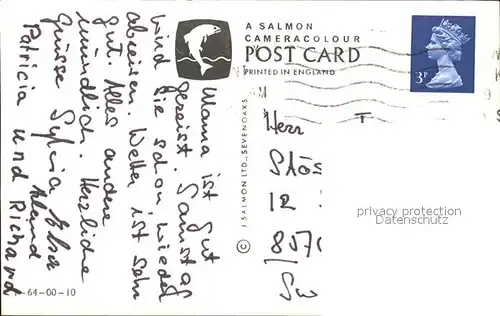 A SALMON
CAMERACOLOUR
POST CARD
PRINTED IN ENGLAND
3P
AM
Mama ist gut
gereist. Samstag
wird sie schon wieder
abreisen. Wetter ist sehr
gut. Alles andere
mündlich. Herzliche
Grüsse Sylvia Elsa
Patricia und Richard
© J. SALMON LTD., SEVENOAKS
-64-00-10
Herr
Stös
12
857
Sw
privacy protection
Datenschutz